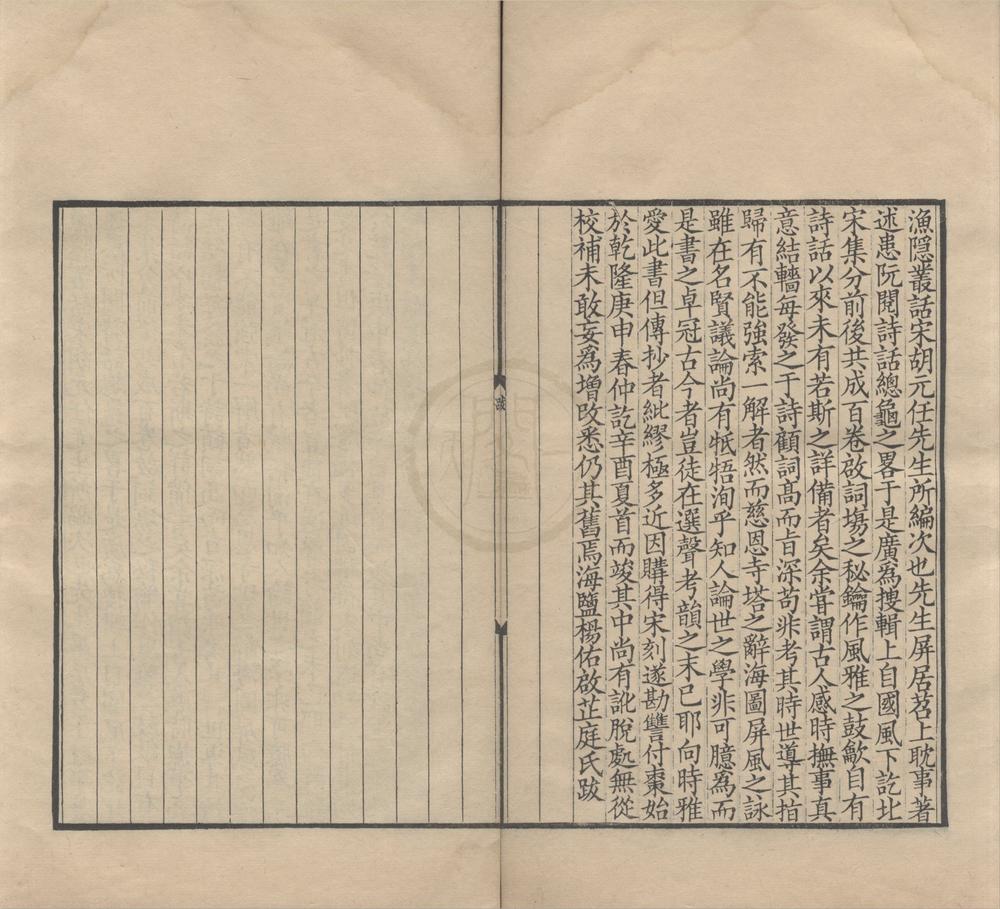 漁隠叢話宋胡元任先生所編次也先生屏居苕上耽事著
述患阮閱詩話總龜之畧于是廣爲捜輯上自國風下訖北
宋集分前後共成百卷啟詞塲之秘鑰作風雅之鼓歙自有
詩話以來未有若斯之詳備者矣余甞謂古人感時撫事真
意結轖每發之于詩顧詞髙而㫖深苟非考其時世導其指
歸有不能強索一解者然而慈恩寺塔之辭海圖屏風之詠
雖在名賢議論尚有牴牾洵乎知人論世之學非可臆爲而
是書之卓冠古今者豈徒在選聲考韻之末已耶向時雅
愛此書但傳抄者紕繆極多近因購得宋刻遂勘讐付棗始
於乾隆庚申春仲訖辛酉夏首而竣其中尚有訛脫處無從
校補未敢妄爲增改悉仍其舊焉海鹽楊佑啟芷庭氏跋
跋